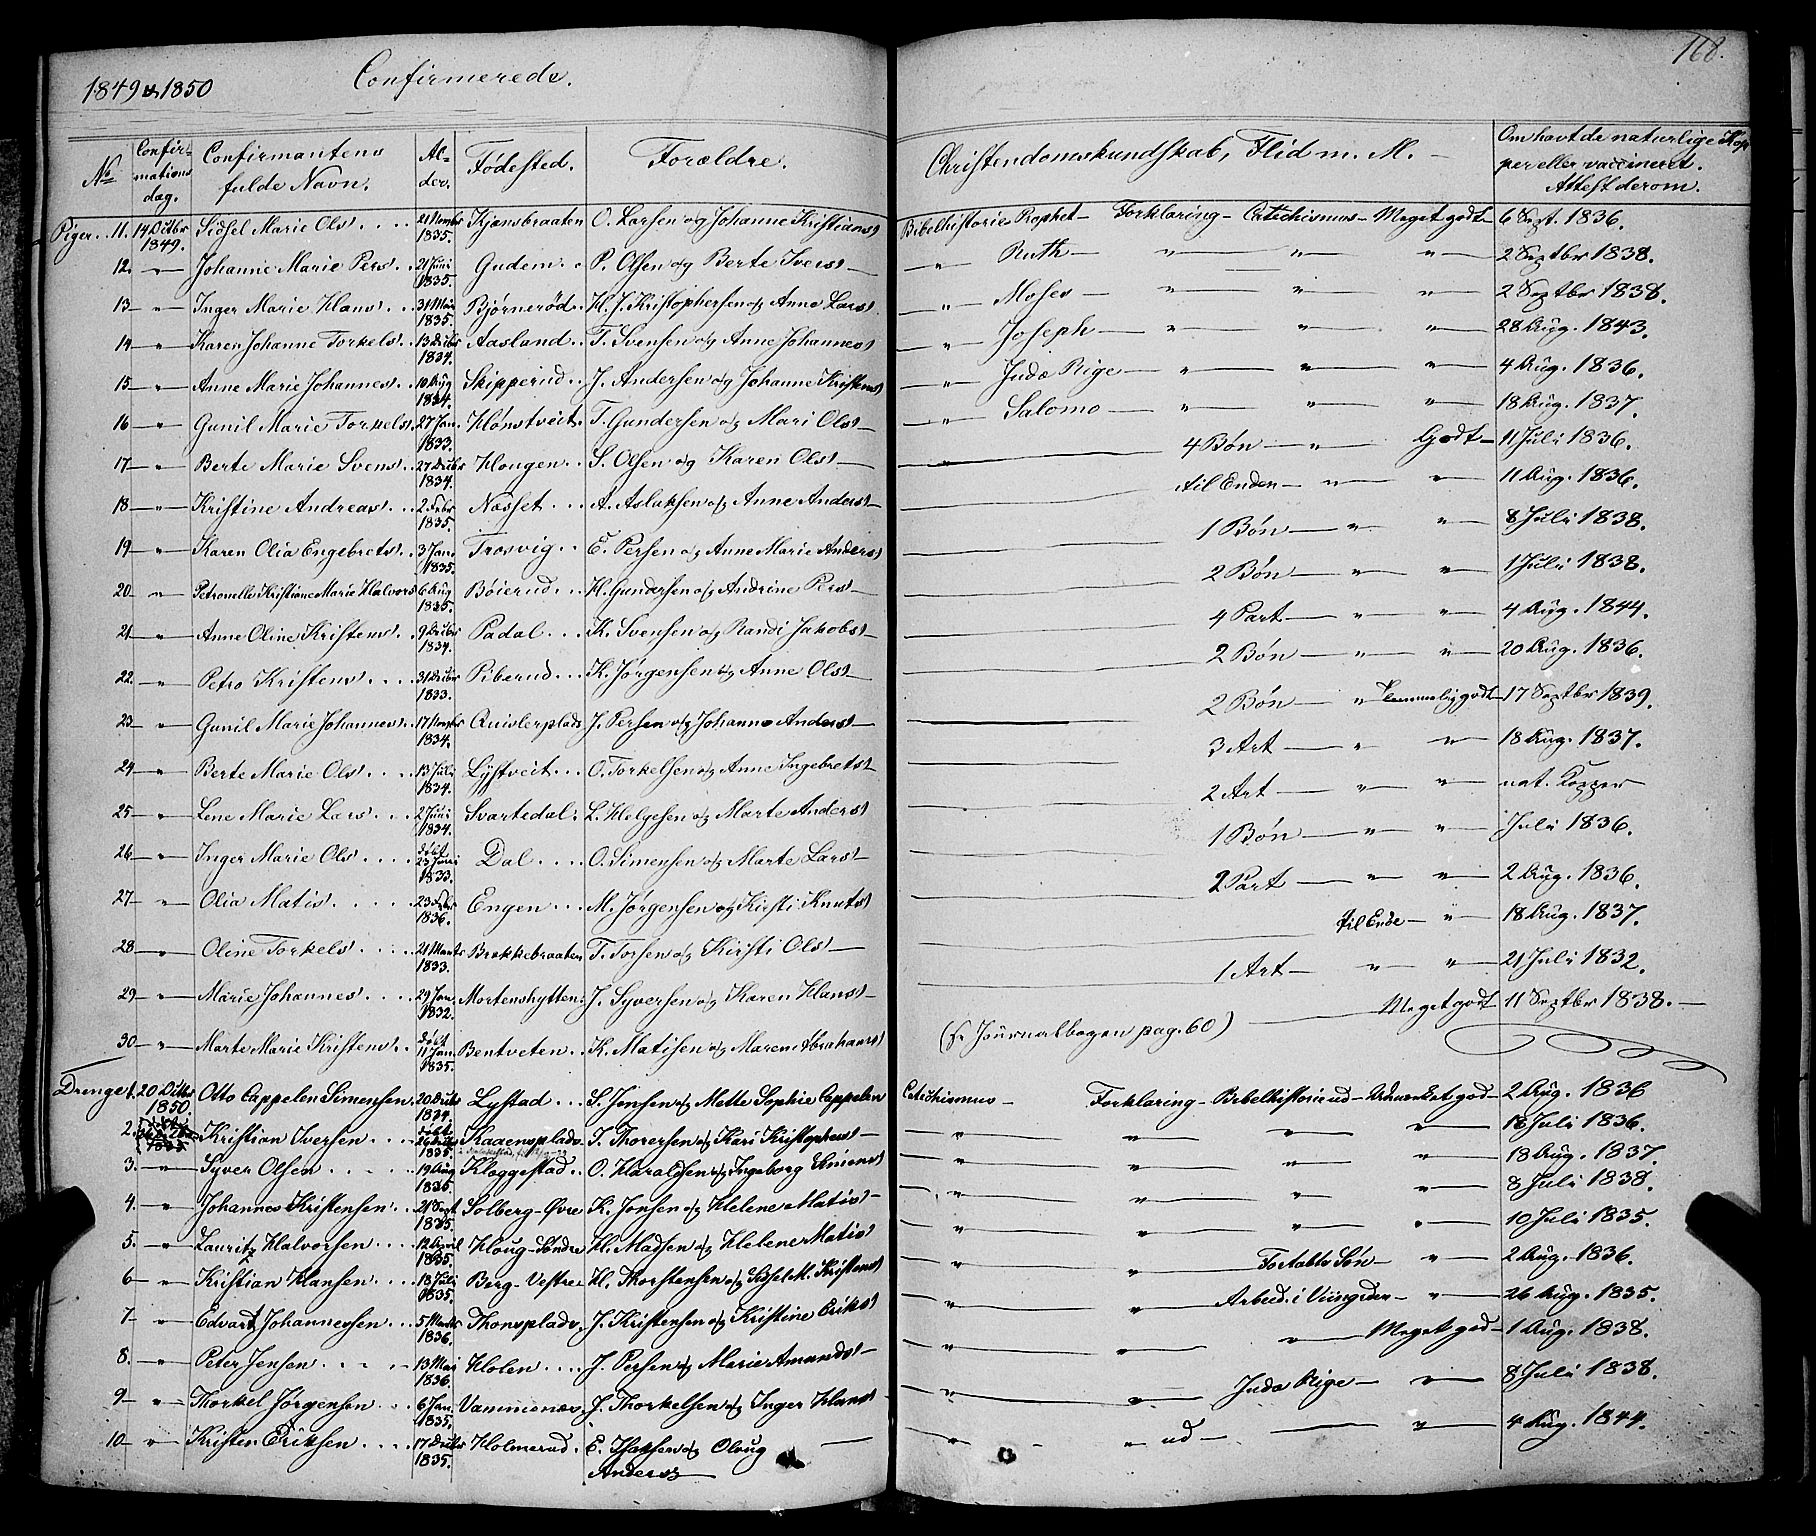 168.
1849 & 1850 Confirmerede.
No Confirmations dag. Confirmantens fulde Navn. Alder. Fødested. Forældre. Christendomskundskab, Flid m. M. Om havt de naturlige Kopper eller vaccineret. Attest derom.
Piger. 11. 14 Octbr 1849. Sidsel Marie Ols 21 Novbr 1835. Kjønsbraaten O. Larsen og Johanne Kristians Bibelhistorie Prophet Forklaring Catichismus Meget godt 6 Sept. 1836.
12. " Johanne Marie Pers 21 Juni 1835. Gudem P. Olsen og Berte Ivers " Ruth " " " 2 Septbr 1838.
13 " Inger Marie Hans 31 Mai 1835. Bjørnerød H. J. Kristophersen og Anne Lars " Moses " " " 2 Septbr 1838.
14 " Karen Johanne Torkels 13 Decbr 1834. Aasland T. Svensen og Anne Johannes " Joseph " " " 28 Aug. 1843.
15 " Anne Marie Johannes 10 Aug 1834. Skipperud J. Andersen og Johanne Kristens " Juda Rige " " " 4 Aug. 1836.
16 " Gunil Marie Torkels 27 Jan. 1833. Hønstveit T. Gundersen og Mari Ols " Salomo " " " 18 Aug. 1837.
17 " Berte Marie Svens 27 Decbr 1834. Hougen S. Olsen og Karen Ols " 4 Bøn " Godt 11 Juli 1836.
18 " Kristine Andreas 2 Febr 1835. Næsset A. Aslaksen og Anne Anders til Enden " " 11 Aug. 1836.
19 " Karen Olia Engebrets 3 Jan. 1835. Trosvig E. Persen og Anne Marie Anders 1 Bøn " " 8 Juli 1838.
20 " Petronelle Kristiane Marie Halvors 6 Aug 1835. Bøierud H. Gundersen og Andrine Pers 2 Bøn " " 1 Juli 1838.
21 " Anne Oline Kristens 9 Decbr 1834. Padal K. Svensen og Randi Jakobs 4 Part " " 4 Aug. 1844.
22. " Petro Kristens 31 Decbr 1833. Piberud K. Jørgensen og Anne Ols 2 Bøn " " 20 Aug. 1836.
23 " Gunil Marie Johannes 17 Novbr 1834. Quislerplads J. Persen og Johanne Anders 2 Bøn " Temmelig godt 17 Septbr 1839.
24 " Berte Marie Ols 13 Juli 1834. Lystveit O. Torkelsen og Anne Ingebrets 3 Art " " 18 Aug. 1837.
25 " Lene Marie Lars 2 Juni 1834. Svartedal L. Helgesen og Marte Anders 2 Art " " nat. Kopper
26 " Inger Marie Ols døbt 23 Juni 1833. Dal O. Simensen og Marte Lars 1 Bøn " " Juli 1836.
27 " Olia Matis 23 Febr 1836. Engen M. Jørgensen og Kirsti Knuts 2 Part " " 2 Aug. 1836.
28 " Oline Torkels 21 Marts 1833. Brekkebraaten T. Torsen og Kirsti Ols til Ende " 18 Aug. 1837.
29 " Marie Johannes 29 Jan. 1832. Mortenshytten J. Syversen og Karen Hans 1 Art " " 21 Juli 1832.
30 " Marte Marie Kristens døbt 11 Jan. 1835. Bentveten K. Matisen og Maren Abrahams (se Journalbogen pag. 60) Meget godt 11 Septbr 1838.
Drenge 1. 20 Octbr 1850. Otto Cappelen Simensen 20 Decbr 1834. Lystad S. Jonsen og Mette Sophie Cappelen Catichismus Forklaring Bibelhistorie ud Udmærket god 2 Aug. 1836
2. Kristian Iversen døbt 26 1835. Kaaensplads I. Thorersen og Kari Kristophers " " " " 18 Juli 1836.
3. " Syver Olsen 19 Aug 1835. Kloggestad O. Haraldsen og Ingeborg Simens " " " " 18 Aug. 1837.
4. " Johannes Kristensen 21 Sept 1835. Solberg-Øvre K. Jonsen og Helene Matis " " " " 8 Juli 1838.
5. " Lauritz Halvorsen 12 April 1835. Houg-Søndre H. Madsen og Helene Matis " " " " 10 Juli 1835.
6 " Kristian Hansen 18 Juli 1835. Berg-Vestre H. Thorstensen og Sidsel M. Kristens " " Fortabte Søn " 2 Aug. 1836.
7 " Edvart Johannesen 5 Marts 1836. Thonsplads J. Kristensen og Kristine Eriks " " Arbeid. i Viingården " 26 Aug. 1835.
8. " Peter Jensen 13 Mai 1836. Holen J. Persen og Marie Amunds " " " Meget god 1 Aug. 1838.
9 " Thorkel Jørgensen 6 Jan. 1835. Vammenæs J. Thorkelsen og Inger Hans " " Juda Rige " 8 Juli 1838.
10 " Kristen Eriksen 17 Decbr 1835. Holmerud E. Isaksen og Oloug Anders " " ud " 4 Aug. 1844.